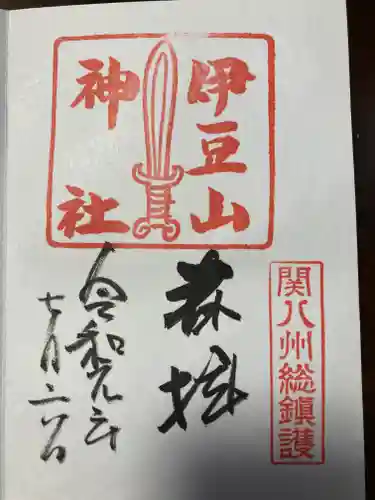 伊豆山
神社
奉拝
関八州総鎮護
令和元年
七月二八日